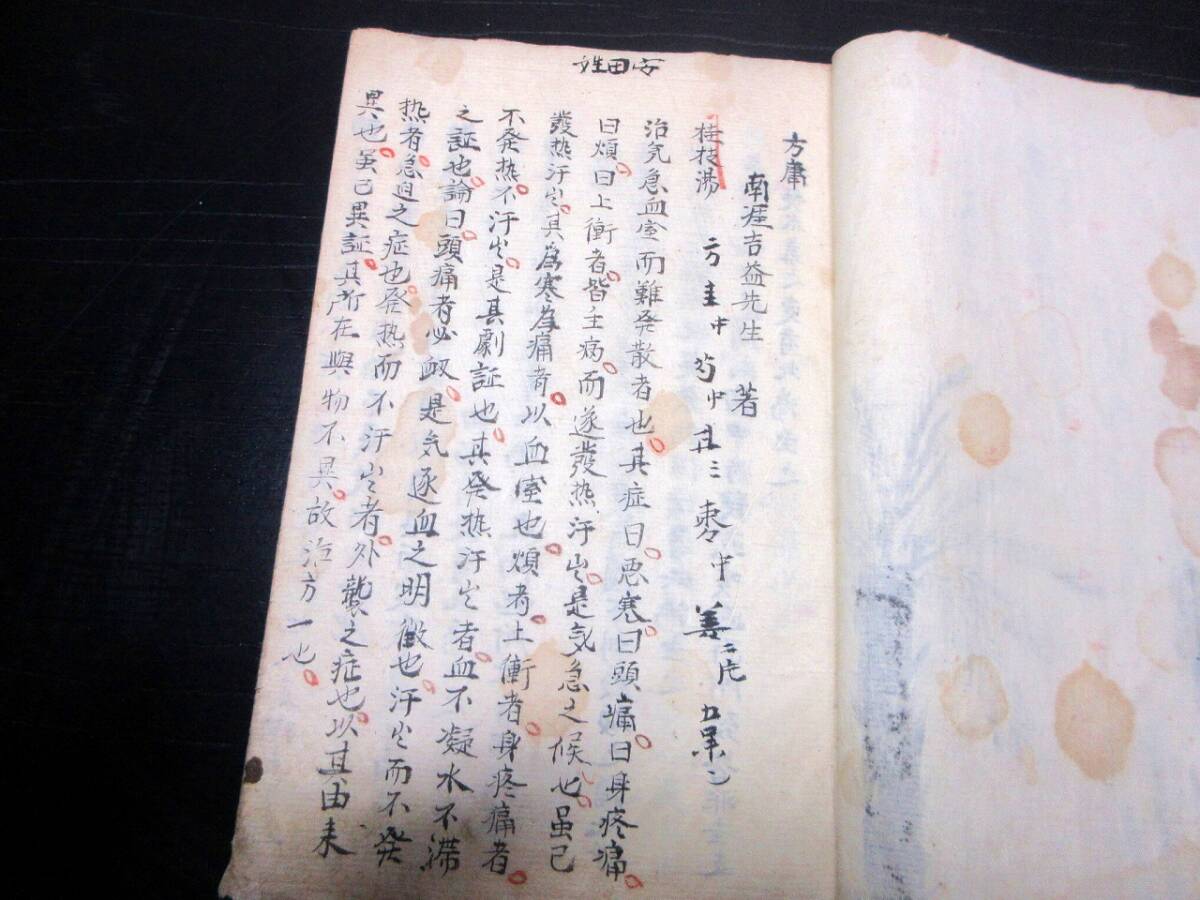 安田姓
方庸
南涯吉益先生 著
桂枝湯 方 圭中 芍中 甘三 棗中 姜二片 右五味
治気急血室而難発散者也。其症曰。悪寒曰頭痛曰身疼痛。
曰煩。曰上衝者皆主病。而遂發热汗出。是気急之候也。虽已
發热汗出。其為寒為痛者。以血室也。煩者。上衝者。身疼痛者。
不發热。不汗出。是其劇証也。其発热汗出者。血不凝水不滞
之証也。論曰。頭痛者必衂。是気逐血之明徴也。汗出而不発
热者。急迫之症也。發热而不汗出者。外襲之症也。以其由来
異也。虽已異証。其所在與物不異。故治方一也。